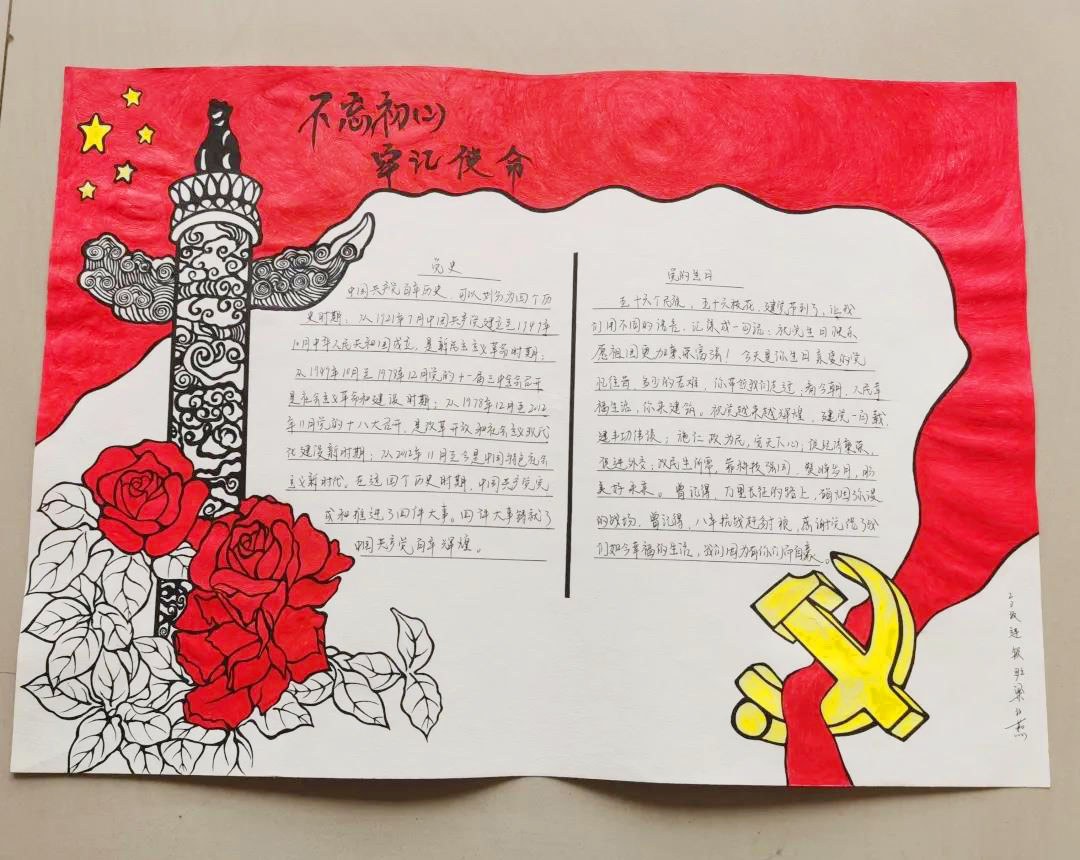 不忘初心
牢记使命
党史
中国共产党百年历史，可以划分为四个历
史时期：从1921年7月中国共产党建立至1949年
10月中华人民共和国成立，是新民主主义革命时期；
从1949年10月至1978年12月党的十一届三中全会召开
是社会主义革命和建设时期；从1978年12月至2012
年11月党的十八大召开，是改革开放和社会主义现代
化建设新时期；从2012年11月至今是中国特色社会
主义新时代。在这四个历史时期，中国共产党完
成和推进了四件大事。四件大事铸就了
中国共产党百年辉煌。
党的生日
五十六个民族，五十六枝花，建党节到了，让我
们用不同的语言，汇集成一句话：祝党生日快乐
愿祖国更加繁荣富强！今天是你生日亲爱的党
忆往昔，多少的苦难，你带领我们走过；看今朝，人民幸
福生活，你来建筑。祝党越来越辉煌，建党一百载，
建丰功伟绩；施仁政为民，安天下心；促经济繁荣，
促进外交；改民生所需，靠科技强国，赞峥嵘岁月，盼
美好未来。曾记得，万里长征的路上，硝烟弥漫
的战场，曾记得，八年抗战赶豺狼，感谢党给了我
们如今幸福的生活，我们因为有你们而自豪。